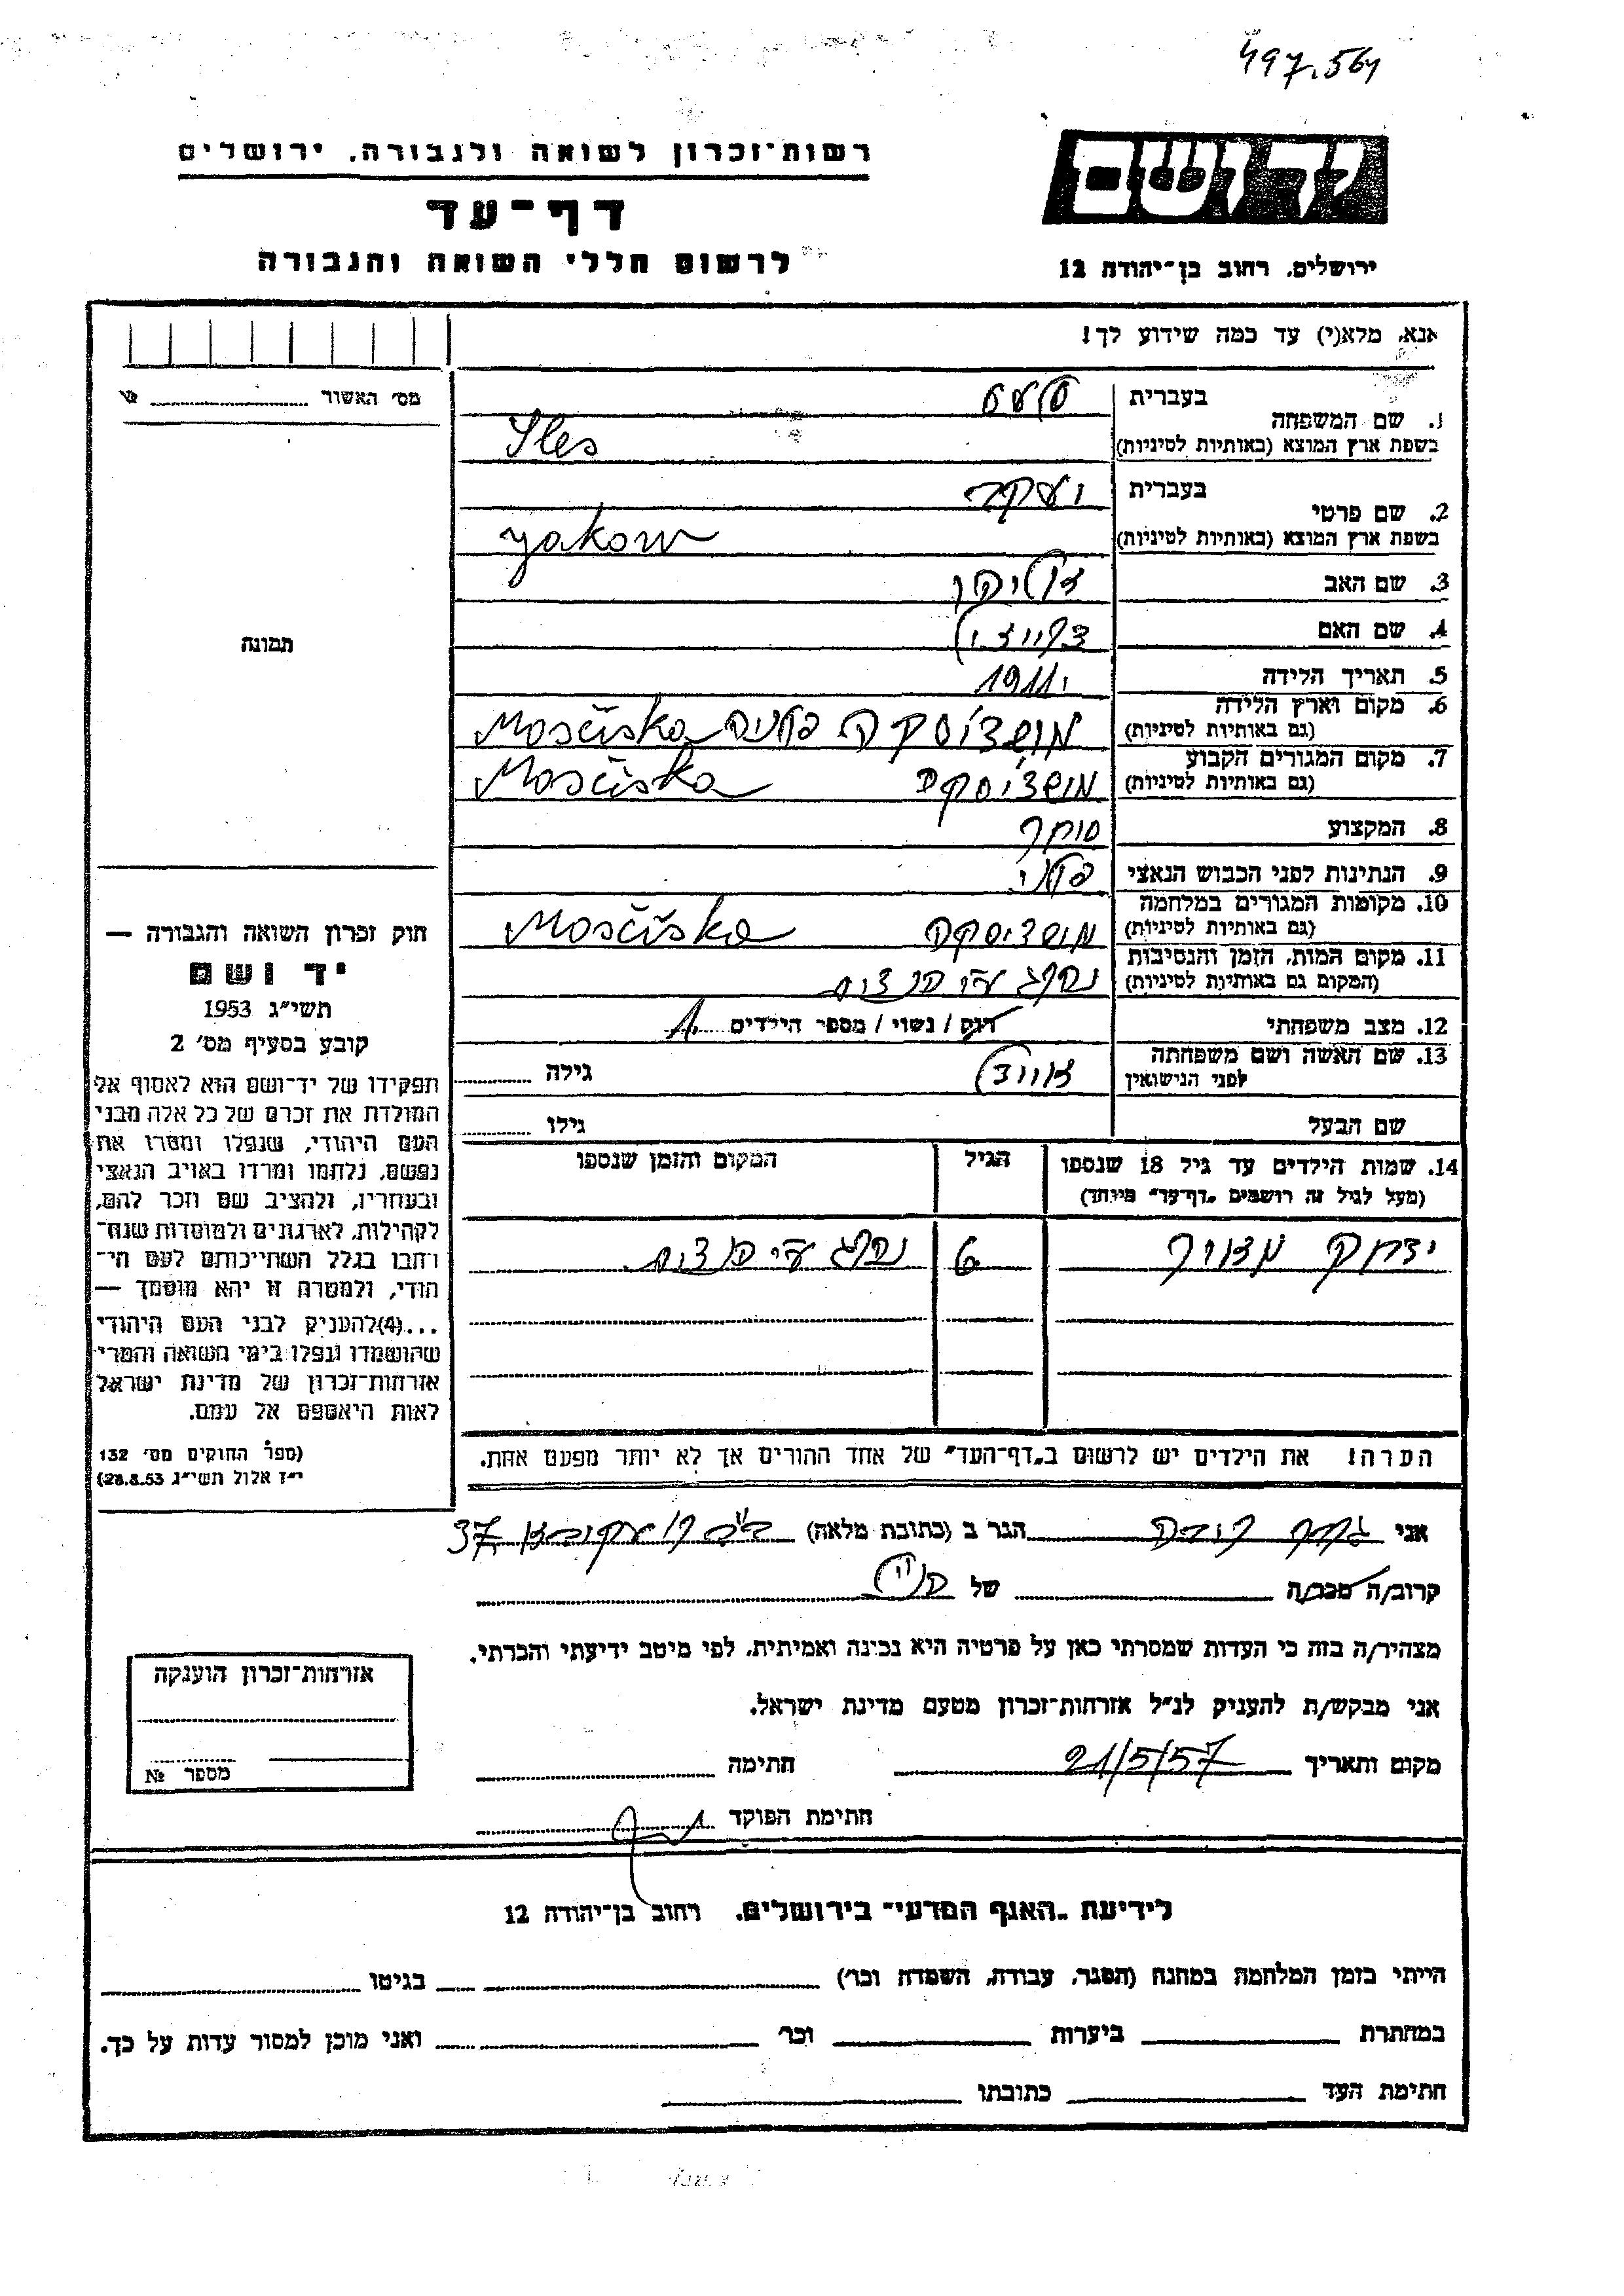 497.564
רשות־זכרון לשואה ולגבורה, ירושלים
יד ושם
דף־עד
לרשום חללי השואה והגבורה
ירושלים, רחוב בן־יהודה 12
אנא, מלא(י) עד כמה שידוע לך!
מס׳ האשור
1. שם המשפחה
בעברית
בשפת ארץ המוצא (באותיות לטיניות) Sles
2. שם פרטי
בעברית יעקב
בשפת ארץ המוצא (באותיות לטיניות) yakow
3. שם האב
4. שם האם
5. תאריך הלידה 1911
6. מקום וארץ הלידה
(גם באותיות לטיניות) מושצ׳יסקה פולניה Mosčiska
7. מקום המגורים הקבוע
(גם באותיות לטיניות) מושצ׳יסקה Mosčiska
8. המקצוע סוחר
9. הנתינות לפני הכבוש הנאצי פולני
10. מקומות המגורים במלחמה
(גם באותיות לטיניות) מושצ׳יסקה Mosčiska
11. מקום המות, הזמן והנסיבות
(המקום גם באותיות לטיניות) נהרג ע״י הנאצים
12. מצב משפחתי רווק / נשוי / מספר הילדים 1
13. שם האשה ושם משפחתה
לפני הנישואין
גילה
שם הבעל
גילו
14. שמות הילדים עד גיל 18 שנספו
(מעל לגיל זה רושמים „דף־עד״ מיוחד)
הגיל
המקום והזמן שנספו
יצחק 6 נהרג ע״י הנאצים
הערה! את הילדים יש לרשום ב„דף־העד״ של אחד ההורים אך לא יותר מפעם אחת.
תמונה
חוק זכרון השואה והגבורה —
יד ושם
תשי״ג 1953
קובע בסעיף מס׳ 2
תפקידו של יד־ושם הוא לאסוף אל
המולדת את זכרם של כל אלה מבני
העם היהודי, שנפלו ומסרו את
נפשם, נלחמו ומרדו באויב הנאצי
ובעוזריו, ולהציב שם וזכר להם,
לקהילות, לארגונים ולמוסדות שנח־
רחבו בגלל השתייכותם לעם הי־
הודי, ולמטרה זו יהא מוסמך —
...(4)להעניק לבני העם היהודי
שהושמדו ונפלו בימי השואה והמרי
אזרחות־זכרון של מדינת ישראל
לאות היאספם אל עמם.
(ספר החוקים מס׳ 132
י״ז אלול תשי״ג 28.8.53)
אני הגר ב (כתובת מלאה) 37
קרוב/ה מכר/ה של
מצהיר/ה בזה כי העדות שמסרתי כאן על פרטיה היא נכונה ואמיתית, לפי מיטב ידיעתי והכרתי.
אני מבקש/ת להעניק לנ״ל אזרחות־זכרון מטעם מדינת ישראל.
מקום ותאריך 21/5/57 חתימה
חתימת הפוקד
אזרחות־זכרון הוענקה
מספר №
לידיעת „האגף המדעי״ בירושלים, רחוב בן־יהודה 12
הייתי בזמן המלחמה במחנה (הסגר, עבודה, השמדה וכר׳) בגיטו
במחתרת ביערות וכר׳ ואני מוכן למסור עדות על כך.
חתימת העד כתובתו